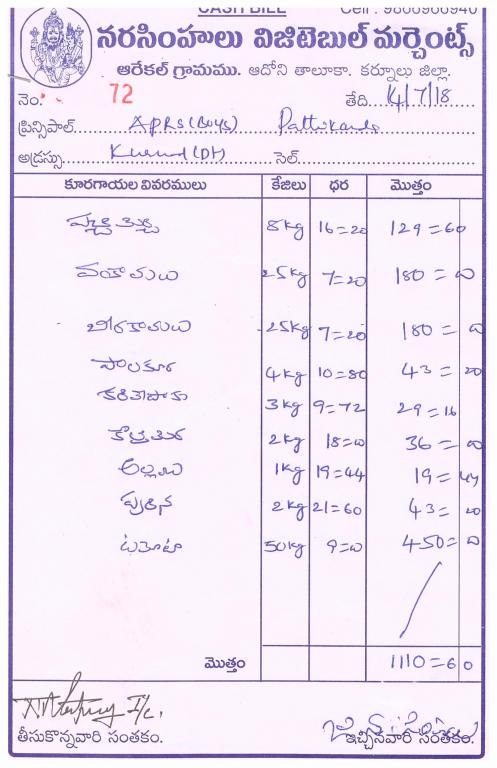 CASH BILL Cell : 9866966940
నరసింహులు విజిటెబుల్ మర్చెంట్స్
ఆరేకల్ గ్రామము. ఆదోని తాలూకా. కర్నూలు జిల్లా.
నెం. 72 తేది. 14/7/18
ప్రిన్సిపాల్ APRS(Boys) Pattikonda
అడ్రస్సు Kurnool (Dt) సెల్
కూరగాయల వివరములు కేజిలు ధర మొత్తం
పచ్చిమిర్చి 8kg 16=20 129=60
వంకాయలు 25kg 7=20 180=0
బీరకాయలు 25kg 7=20 180=0
పాలకూర 4kg 10=80 43=20
కరివేపాకు 3kg 9=72 29=16
కొత్తిమీర 2kg 18=0 36=0
అల్లము 1kg 19=44 19=44
పుదిన 2kg 21=60 43=20
టమోటా 50kg 9=0 450=0
మొత్తం 1110=60
I/c.
తీసుకొన్నవారి సంతకం. ఇచ్చినవారి సంతకం.